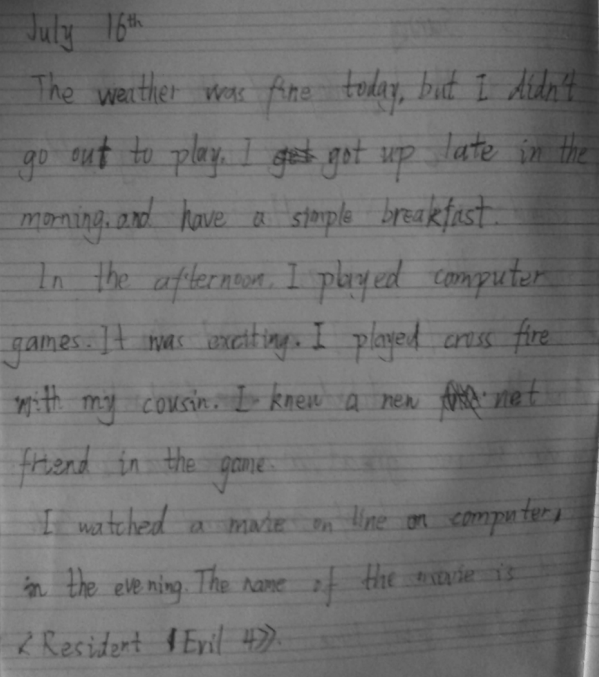 July 16th
The weather was fine today, but I didn't
go out to play. I got up late in the
morning, and have a simple breakfast.
In the afternoon, I played computer
games. It was exciting. I played cross fire
with my cousin. I knew a new net
friend in the game.
I watched a movie on line on computer,
in the evening. The name of the movie is
<Resident Evil 4>>.